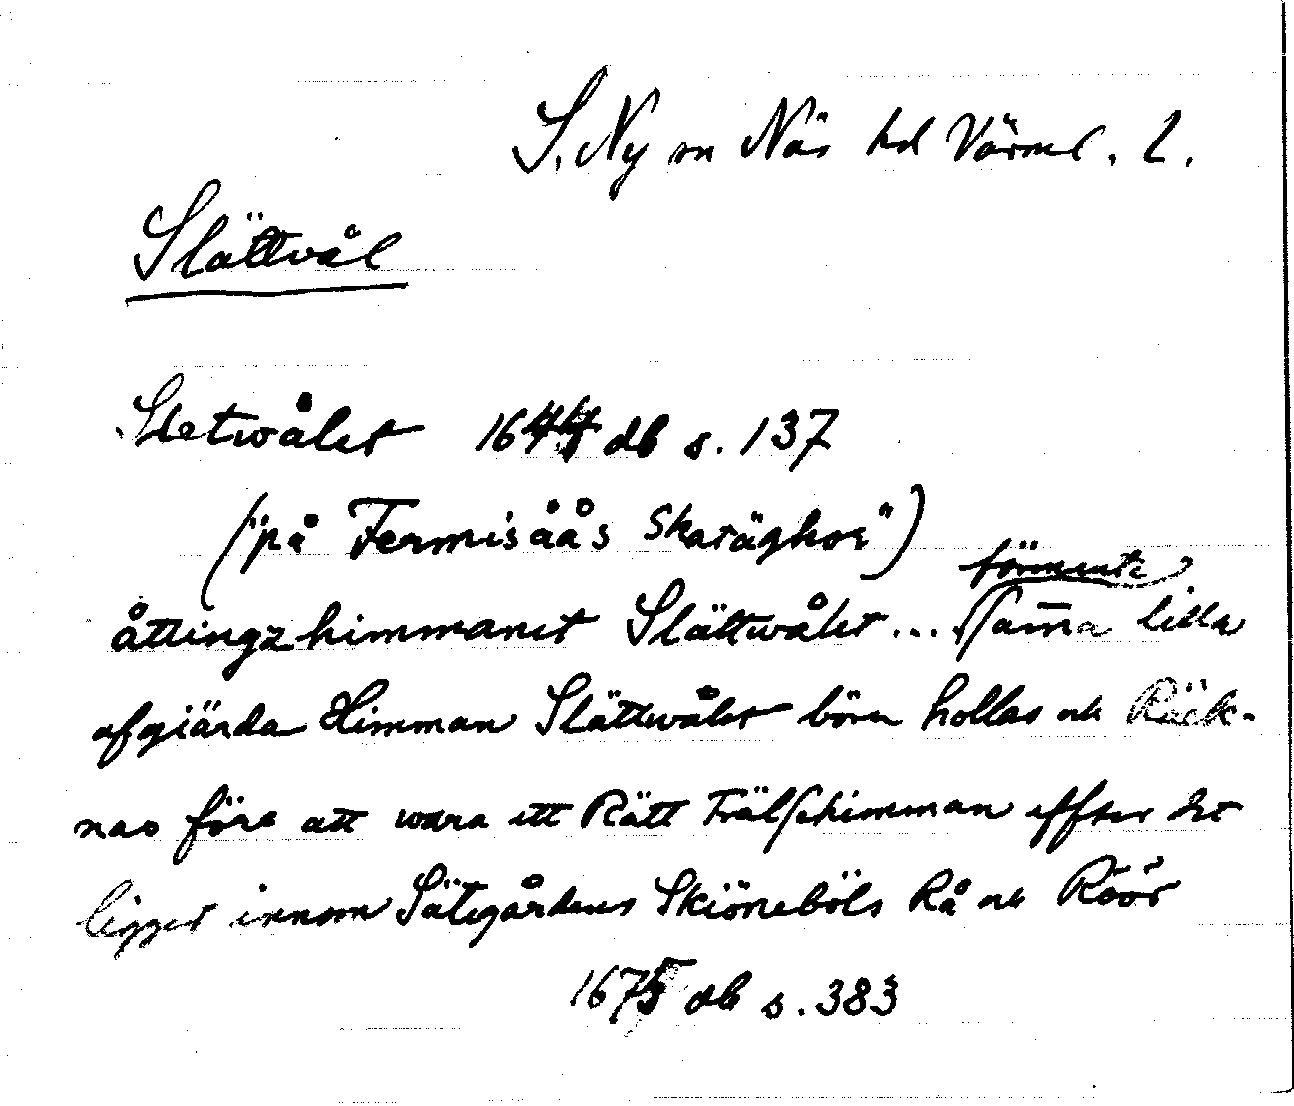 S. Ny sn Näs hd Värml. l.
Slättvål
Sletwålet 1644 db s. 137
("på Fermisåås Skaräghos")
förmente
åttingzhimmanet Slättwålet... Samma lilla
afgiärda Himman Slättwålet böra hollas och Räck-
nas före att wara ett Rätt Frälsehimman effter det
ligger innom Sätegårdens Skiöneböls Rå och Röör
1675 db s. 383